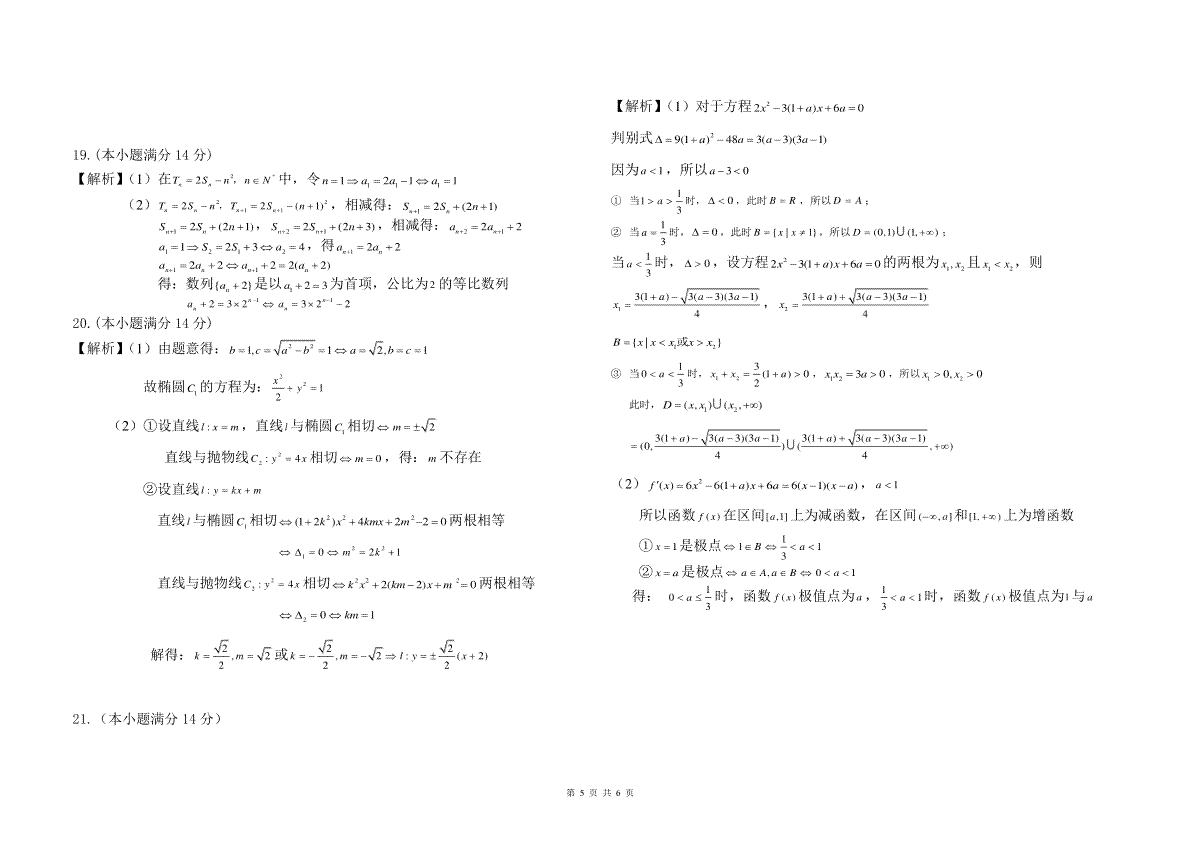 19.(本小题满分 14 分)
【解析】（1）在Tₙ = 2Sₙ − n²，n ∈ N⁺ 中，令 n = 1 ⇒ a₁ = 2a₁ − 1 ⇔ a₁ = 1
（2）Tₙ = 2Sₙ − n²，Tₙ₊₁ = 2Sₙ₊₁ − (n+1)²，相减得：Sₙ₊₁ = 2Sₙ + (2n+1)
Sₙ₊₁ = 2Sₙ + (2n+1)，Sₙ₊₂ = 2Sₙ₊₁ + (2n+3)，相减得：aₙ₊₂ = 2aₙ₊₁ + 2
a₁ = 1 ⇒ S₂ = 2S₁ + 3 ⇔ a₂ = 4，得 aₙ₊₁ = 2aₙ + 2
aₙ₊₁ = 2aₙ + 2 ⇔ aₙ₊₁ + 2 = 2(aₙ + 2)
得：数列{aₙ + 2}是以 a₁ + 2 = 3 为首项，公比为 2 的等比数列
aₙ + 2 = 3×2ⁿ⁻¹ ⇔ aₙ = 3×2ⁿ⁻¹ − 2
20.(本小题满分 14 分)
【解析】（1）由题意得：b = 1, c = √(a² − b²) = 1 ⇔ a = √2, b = c = 1
故椭圆C₁的方程为：x²/2 + y² = 1
（2）①设直线 l : x = m，直线 l 与椭圆C₁相切 ⇔ m = ±√2
直线与抛物线C₂ : y² = 4x 相切 ⇔ m = 0，得：m 不存在
②设直线 l : y = kx + m
直线 l 与椭圆C₁相切 ⇔ (1+2k²)x² + 4kmx + 2m² − 2 = 0 两根相等
⇔ Δ₁ = 0 ⇔ m² = 2k² + 1
直线与抛物线C₂ : y² = 4x 相切 ⇔ k²x² + 2(km−2)x + m² = 0 两根相等
⇔ Δ₂ = 0 ⇔ km = 1
解得：k = √2/2, m = √2 或 k = −√2/2, m = −√2 ⇒ l : y = ±√2/2(x + 2)
21.（本小题满分 14 分）
【解析】（1）对于方程 2x² − 3(1+a)x + 6a = 0
判别式 Δ = 9(1+a)² − 48a = 3(a−3)(3a−1)
因为 a < 1，所以 a − 3 < 0
① 当1 > a > 1/3 时，Δ < 0，此时 B = R，所以 D = A；
② 当 a = 1/3 时，Δ = 0，此时 B = {x | x ≠ 1}，所以 D = (0,1)∪(1,+∞)；
当 a < 1/3 时，Δ > 0，设方程 2x² − 3(1+a)x + 6a = 0 的两根为 x₁, x₂ 且 x₁ < x₂，则
x₁ = (3(1+a) − √(3(a−3)(3a−1)))/4，x₂ = (3(1+a) + √(3(a−3)(3a−1)))/4
B = {x | x < x₁或x > x₂}
③ 当 0 < a < 1/3 时，x₁ + x₂ = 3/2(1+a) > 0，x₁x₂ = 3a > 0，所以 x₁ > 0, x₂ > 0
此时，D = (x, x₁)∪(x₂, +∞)
= (0, (3(1+a) − √(3(a−3)(3a−1)))/4)∪((3(1+a) + √(3(a−3)(3a−1)))/4, +∞)
（2）f′(x) = 6x² − 6(1+a)x + 6a = 6(x−1)(x−a)，a < 1
所以函数 f(x) 在区间[a,1]上为减函数，在区间(−∞, a]和[1, +∞)上为增函数
① x = 1 是极点 ⇔ 1 ∈ B ⇔ 1/3 < a < 1
② x = a 是极点 ⇔ a ∈ A, a ∈ B ⇔ 0 < a < 1
得： 0 < a ≤ 1/3 时，函数 f(x) 极值点为 a，1/3 < a < 1 时，函数 f(x) 极值点为 1 与 a
第 5 页 共 6 页